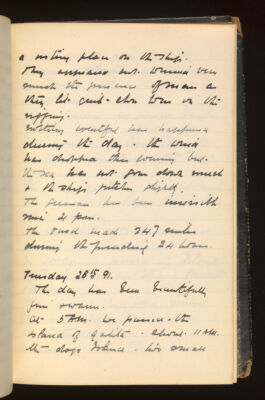 a resting place on the ship.
They  not  very
much the presence of man a
they
rigging.
Nothing eventful has happened
during the day. The wind
has dropped this evening but
the sea has not gone down much
& the ship pitches slightly.
The  has been
since 4 p.m.
The  made 347 miles
during the preceding 24 hours.
Tuesday 28th 91.
The day has been beautifully
fine & warm.
At 5 A.M. we passed the
island of Galita. About 11 A.M.
the dogs Island. two small